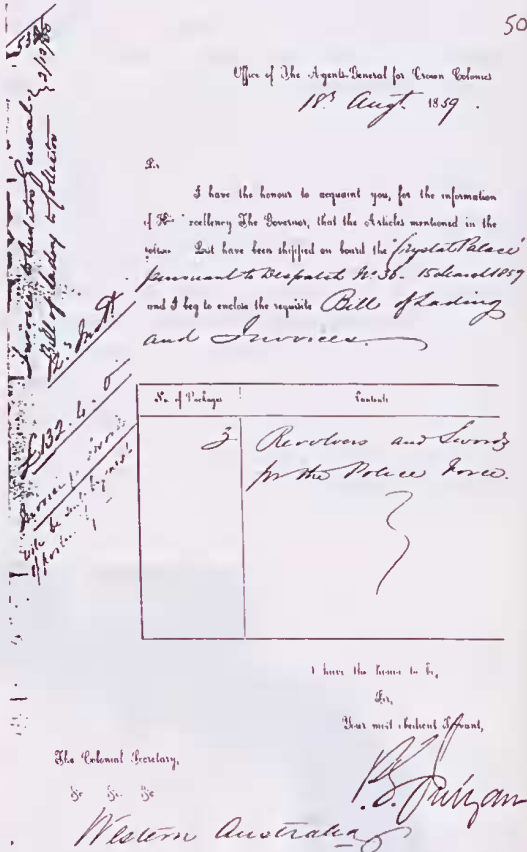 50
Office of The Agents-General for Crown Colonies
18th Augt. 1859.
Sir
I have the honour to acquaint you, for the information
of His cellency The Governor, that the Articles mentioned in the
List have been shipped on board the "Crystal Palace"
pursuant to Despatch No. 36. 15 March 1859
and I beg to enclose the requisite Bill of Lading
and Invoices.
No. of Packages Contents
3 Revolvers and Swords
for the Police Force.
I have the honor to be,
Sir,
Your most obedient Servant,
The Colonial Secretary,
&c &c &c
Western Australia
Invoices to Auditor General
Bill of lading to Collector
£132. 6. 0
Invoice for swords
will be sent by next